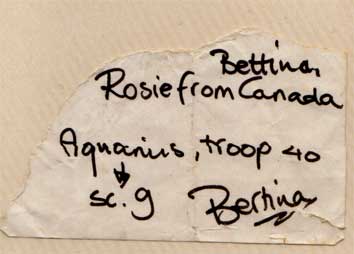 Bettina,
Rosie from Canada
Aquarius, troop 40
sc. 9
Bertina